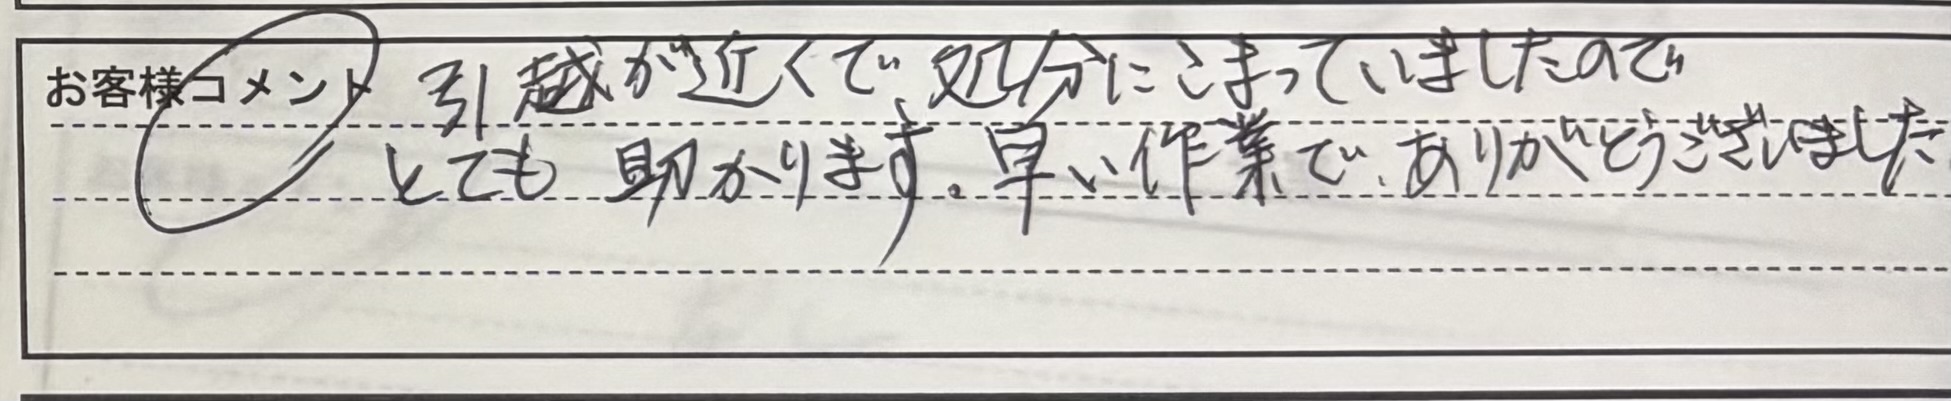 お客様コメント 引越が近くで、処分にこまっていましたので
とても助かります。早い作業で、ありがとうございました